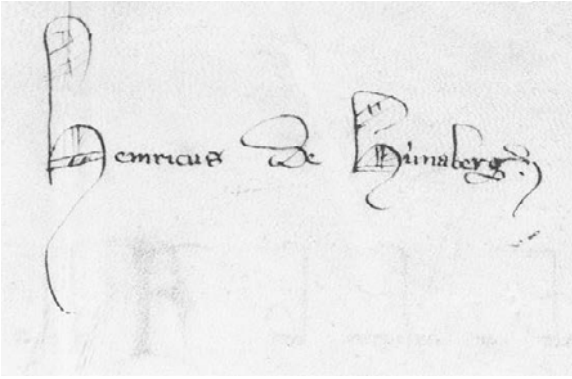 Heinricus de Húnaberg